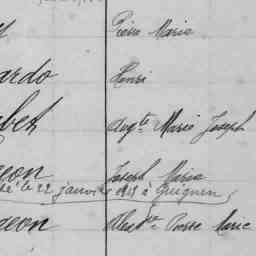 Pierre Marie
ardo Henri
bet Augte Marie Joseph
geon Joseph Marie
le 22 janvier 1918 à Guignen
geon Alexdre Pierre Marie